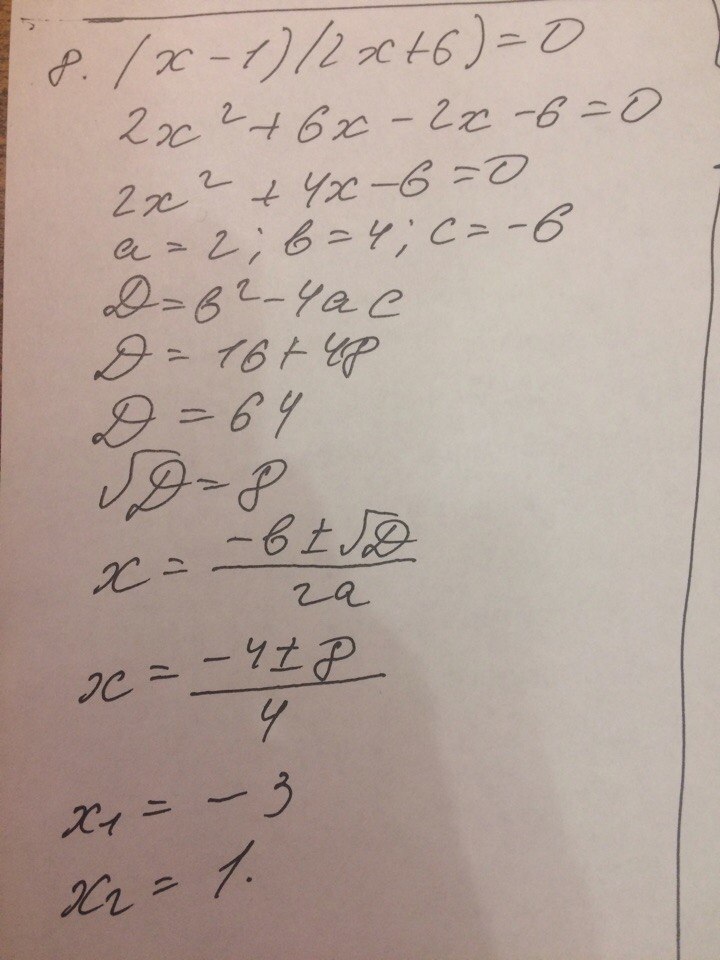 8. (x-1)(2x+6)=0
2x²+6x-2x-6=0
2x²+4x-6=0
a=2; в=4; c=-6
D=в²-4ac
D=16+48
D=64
√D=8
x=(-в±√D)/2a
x=(-4±8)/4
x₁=-3
x₂=1.